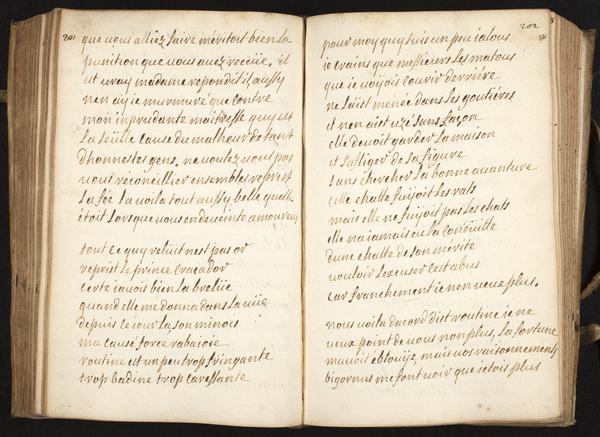 201
que vous alliez faire meritoit bien la
punition que vous avez receüe, il
est vray madame repondit il, aussy
nen ay ie murmuré que contre
mon inprudante maitresse quy est
la seulle cause du malheur de tant
dhonnestes gens, ne voulez vous pas
vous reconcillier ensemble reprist
la fée la voila tout aussy belle quelle
étoit lorsque vous en deveinte amoureux
tout ce quy reluit nest pas or
reprist le prince
certe iavois bien la berlüe
quand elle me donna dans la veüe
depuis ce iour la son minois
ma causé force rabaioie
routine est un peu trop fringante
trop badine trop caressante
202
pour moy quy suis un peu ialous
ie crains que messieurs les matous
que ie voyois courir derriére
ne laist menée dans les goutiéres
et nen aist uzé sans façon
elle devoit garder la maison
et safliger de sa figure
sans chercher la bonne avanture
cette chatte fuijoit les rats
mais elle ne fuijoit pas les chats
elle na iamais eu la
dune chatte de son mérite
vouloir lexcuser cest abus
car franchement ie nen veux plus.
nous voila dacord dist routine ie ne
veux point de vous non plus, la fortune
mavoit éblouije, mais vos raisonnements
bigornus me font voir que ietois plus